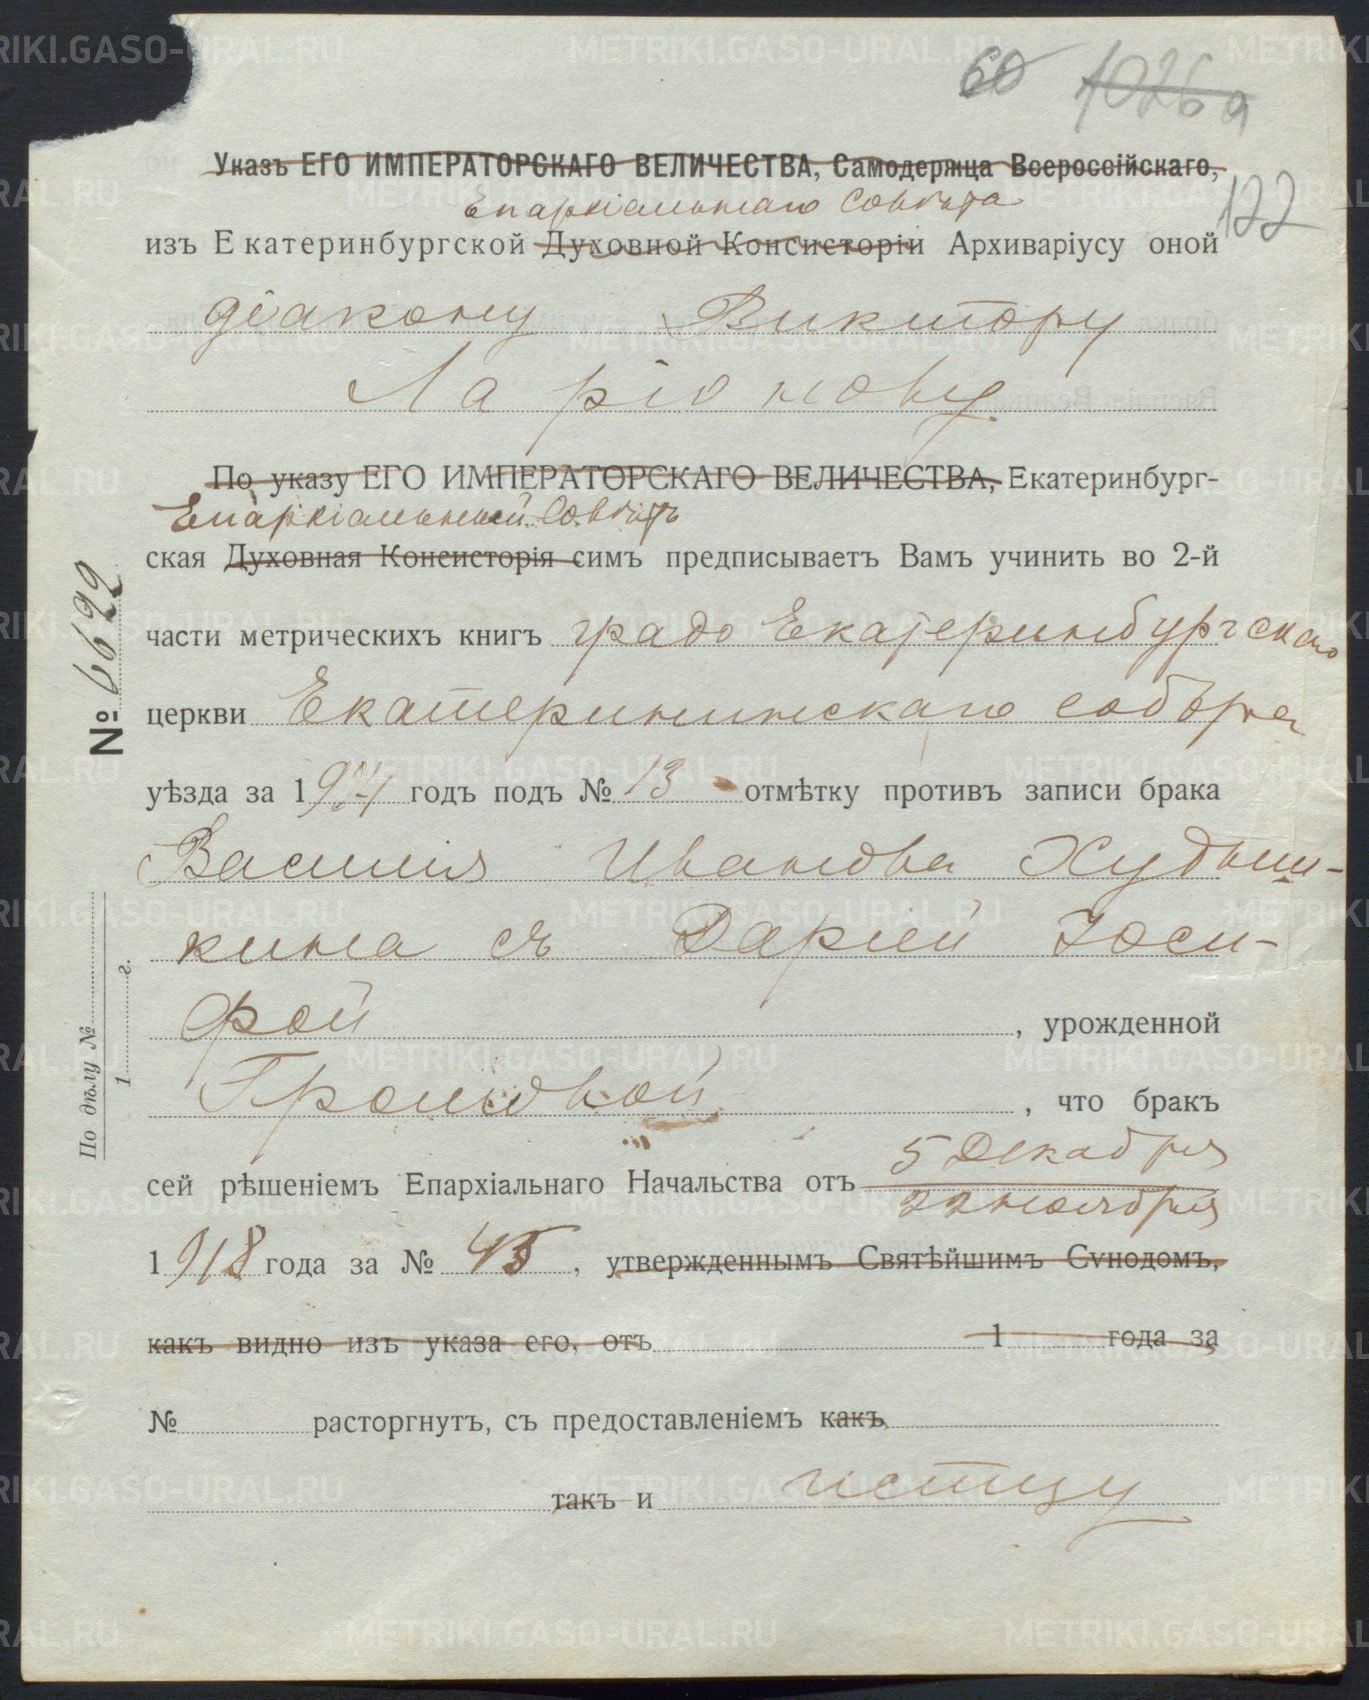 60 1026а
122
Указъ ЕГО ИМПЕРАТОРСКАГО ВЕЛИЧЕСТВА, Самодержца Всероссійскаго,
Епархіальнаго Совѣта
изъ Екатеринбургской Духовной Консисторіи Архиваріусу оной
діакону Виктору
Ларіонову
По указу ЕГО ИМПЕРАТОРСКАГО ВЕЛИЧЕСТВА, Екатеринбург-
Епархіальный Совѣтъ
ская Духовная Консисторія симъ предписываетъ Вамъ учинить во 2-й
части метрическихъ книгъ градо Екатеринбургскаго
церкви Екатерининскаго собора
уѣзда за 19 годъ подъ № 13 отмѣтку противъ записи брака
Василія Иванова Худыш-
кина съ Даріей Іоси-
фой, урожденной
Громовой, что бракъ
сей рѣшеніемъ Епархіальнаго Начальства отъ 5 Декабря
22 ноября
1918 года за № 45, утвержденнымъ Святѣйшимъ Сѵнодомъ,
какъ видно изъ указа его, отъ 1 года за
№ расторгнутъ, съ предоставленіемъ какъ
такъ и истцу
№ 6622
По дѣлу №
1 г.
METRIKI.GASO-URAL.RU